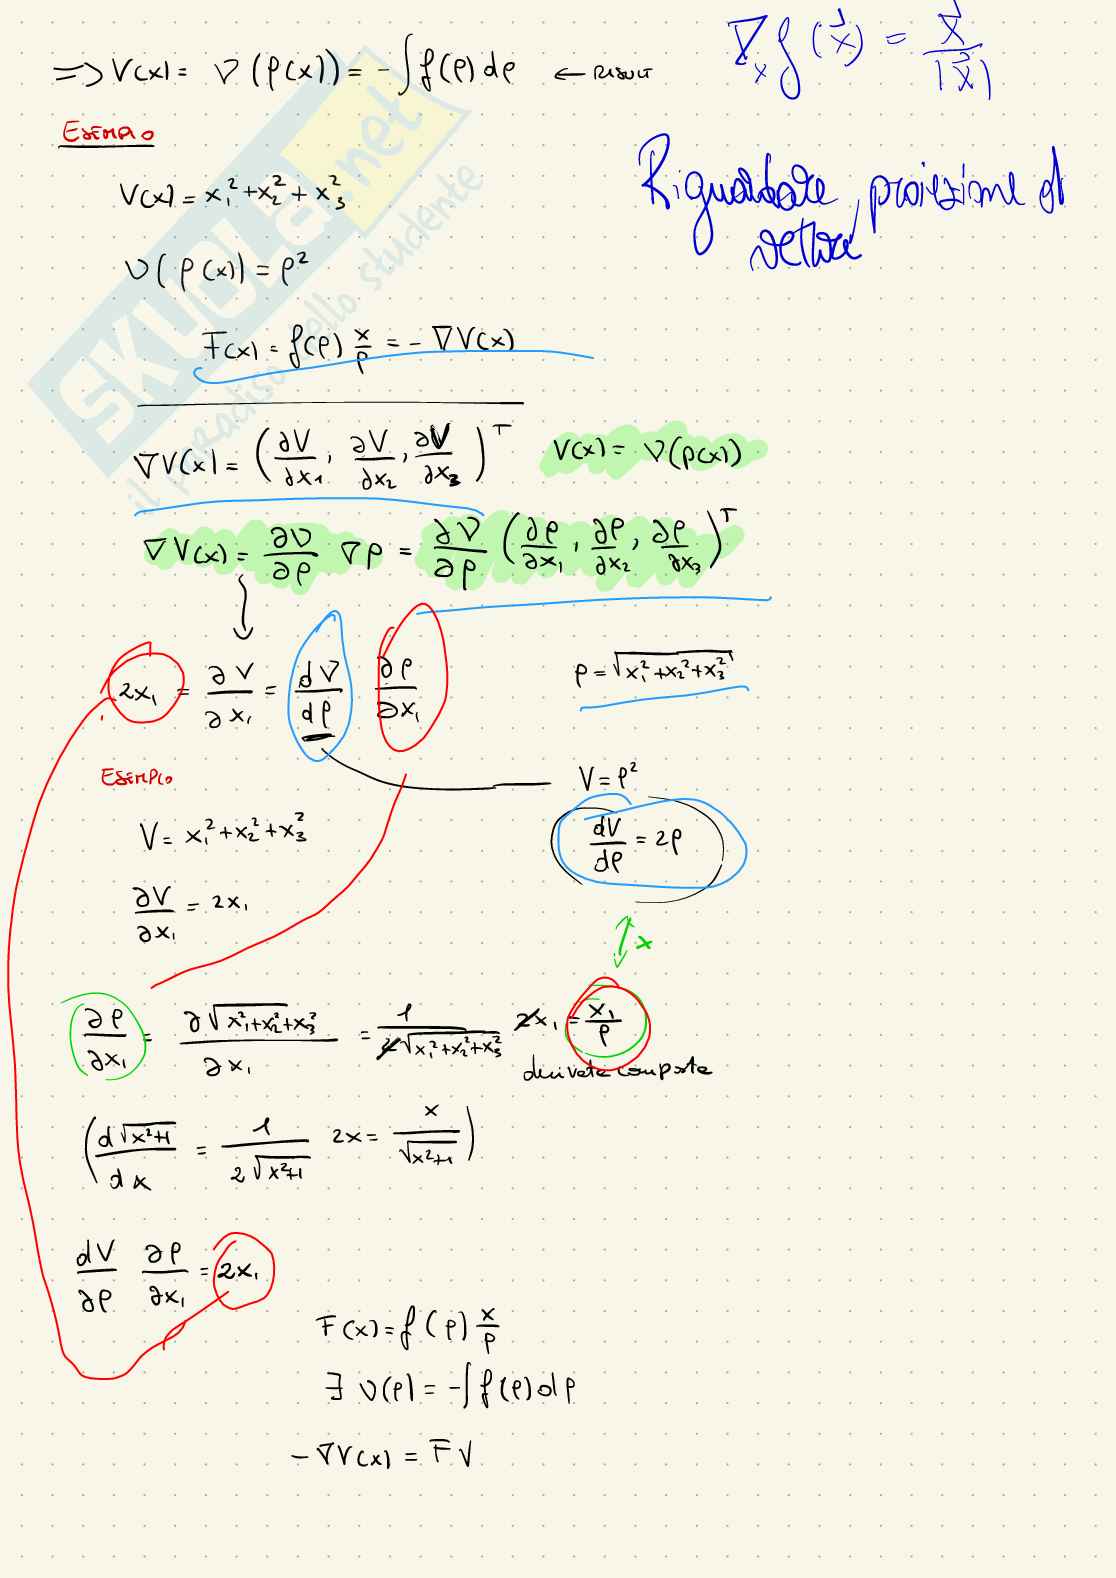 => V(x) = ν(ρ(x)) = -∫f(ρ)dρ ← RISULT
∇ₓ f(x⃗) = x⃗/|x⃗|
ESEMPIO
Riguardare, proiezione di vettore
V(x) = x₁² + x₂² + x₃²
ν(ρ(x)) = ρ²
F(x) = f(ρ) x/ρ = - ∇V(x)
∇V(x) = (∂V/∂x₁, ∂V/∂x₂, ∂V/∂x₃)ᵀ V(x) = ν(ρ(x))
∇V(x) = ∂ν/∂ρ ∇ρ = ∂ν/∂ρ (∂ρ/∂x₁, ∂ρ/∂x₂, ∂ρ/∂x₃)ᵀ
2x₁ = ∂V/∂x₁ = dν/dρ ∂ρ/∂x₁ ρ = √(x₁² + x₂² + x₃²)
ESEMPIO V = ρ²
V = x₁² + x₂² + x₃² dV/dρ = 2ρ
∂V/∂x₁ = 2x₁
x
∂ρ/∂x₁ = ∂√(x₁² + x₂² + x₃²)/∂x₁ = 1/(2√(x₁² + x₂² + x₃²)) 2x₁ = x₁/ρ
derivate composte
(d√(x²+1)/dx = 1/(2√(x²+1)) 2x = x/√(x²+1))
dV/∂ρ ∂ρ/∂x₁ = 2x₁
F(x) = f(ρ) x/ρ
∃ ν(ρ) = -∫f(ρ)dρ
- ∇V(x) = F √
SKUOLA.net
il paradiso dello studente